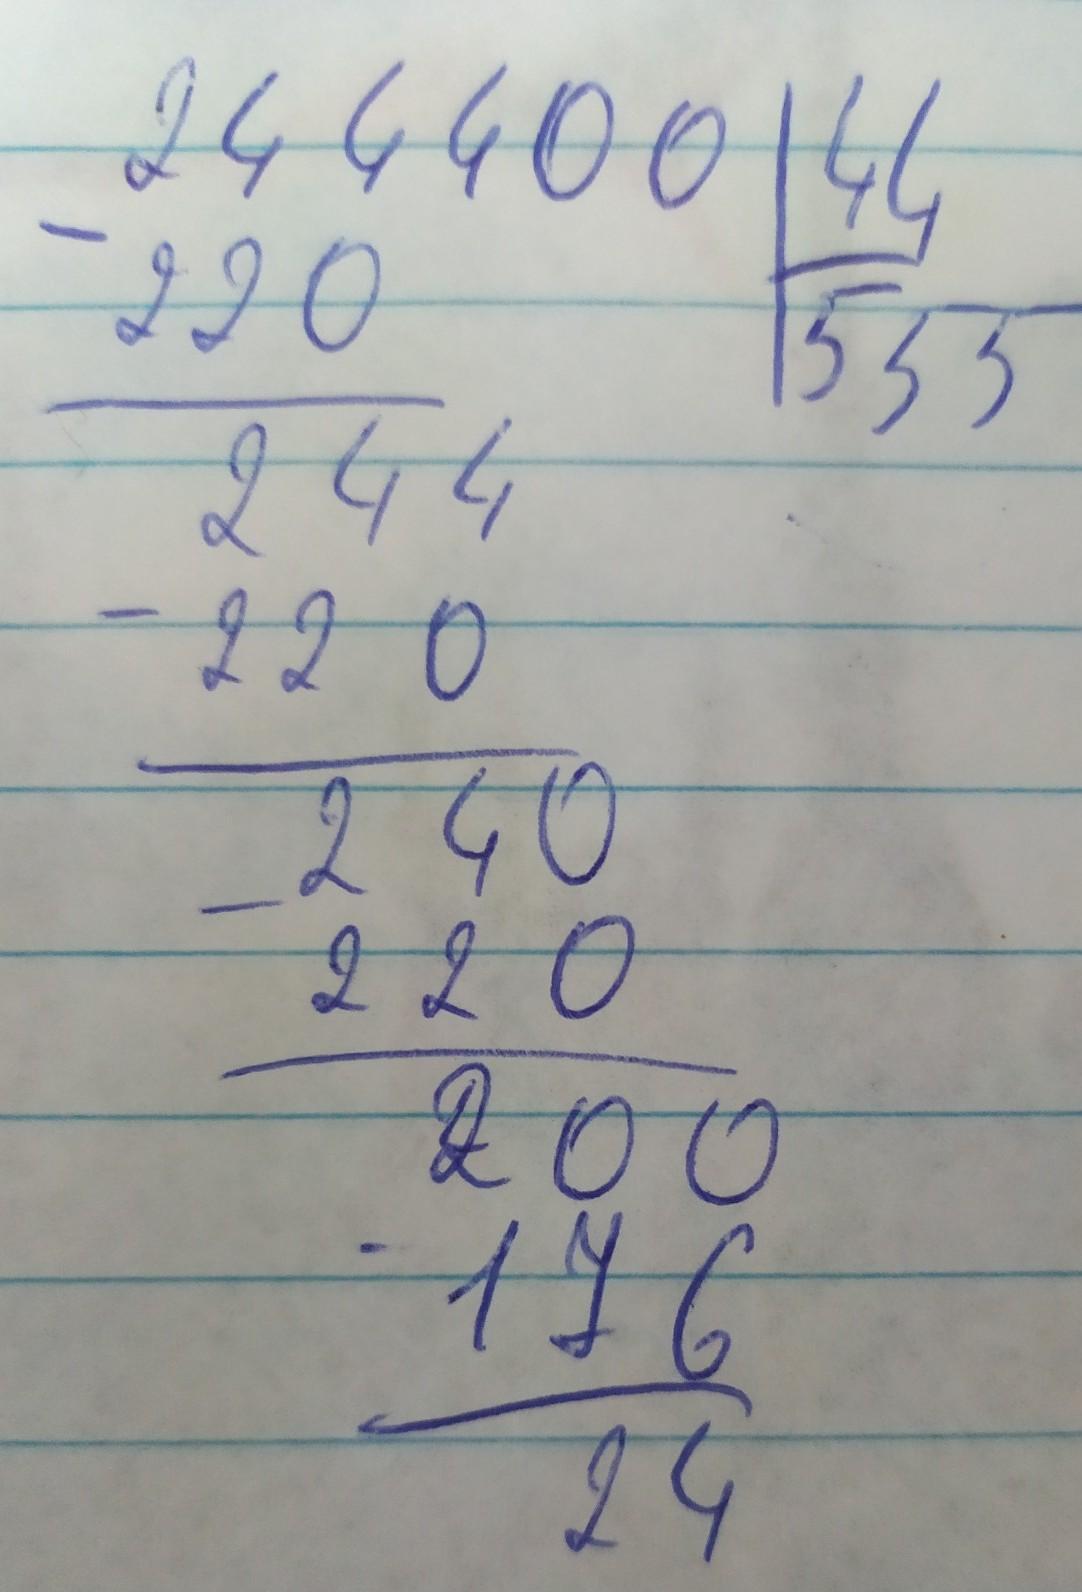 244400 44
- 220 555
244
- 220
240
- 220
200
- 176
24